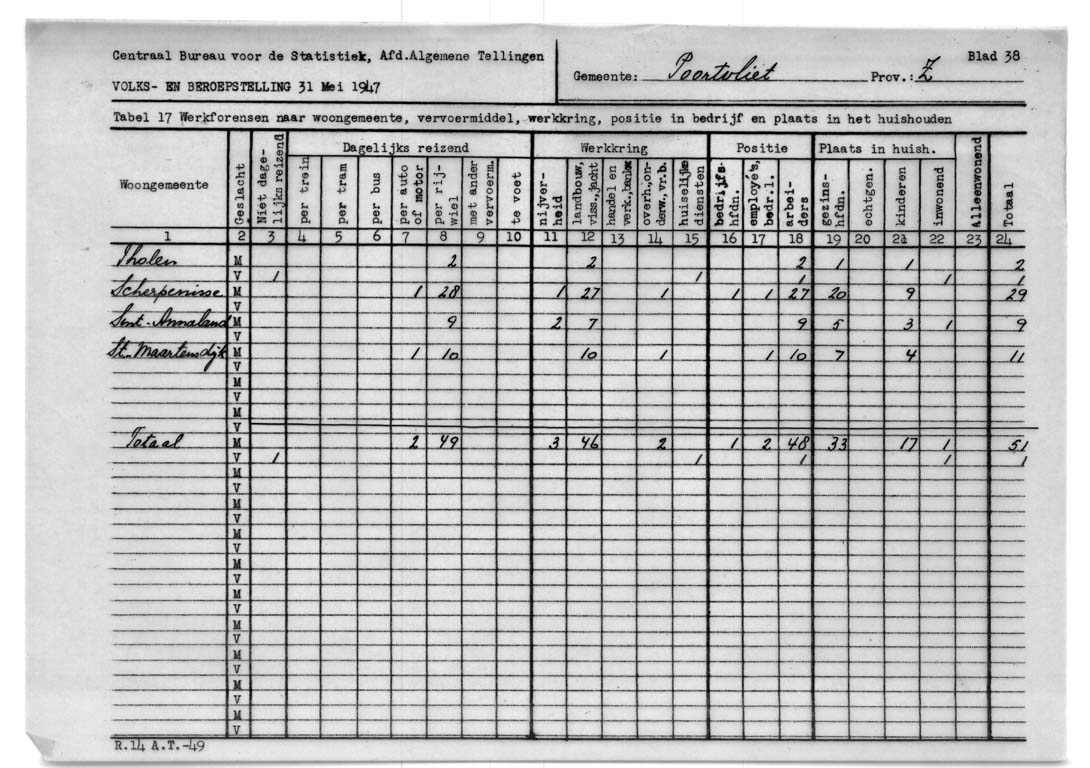 Centraal Bureau voor de Statistiek, Afd.Algemene Tellingen
VOLKS- EN BEROEPSTELLING 31 Mei 1947
Gemeente: Poortvliet Prov.: Z
Blad 38
Tabel 17 Werkforensen naar woongemeente, vervoermiddel, werkkring, positie in bedrijf en plaats in het huishouden
Woongemeente Geslacht Niet dage-lijks reizend Dagelijks reizend Werkkring Positie Plaats in huish. Alleenwonend Totaal
per trein per tram per bus per auto of motor per rij-wiel met ander vervoerm. te voet nijver-heid landbouw, viss.,jacht handel en verk.,bankw overh.,on-derw.vr.b. huiselijke diensten bedrijfs-hfdn. employé's, bedr.l. arbei-ders gezins-hfdn. echtgen. kinderen inwonend
1 2 3 4 5 6 7 8 9 10 11 12 13 14 15 16 17 18 19 20 21 22 23 24
Tholen M 2 2 2 1 1 2
V 1 1 1 1 1
Scherpenisse M 1 28 1 27 1 1 1 27 20 9 29
V
Sint-Annaland M 9 2 7 9 5 3 1 9
V
St. Maartensdijk M 1 10 10 1 1 10 7 4 11
V
M
V
M
V
M
V
Totaal M 2 49 3 46 2 1 2 48 33 17 1 51
V 1 1 1 1 1
M
V
M
V
M
V
M
V
M
V
M
V
M
V
M
V
M
V
R.14 A.T.-49